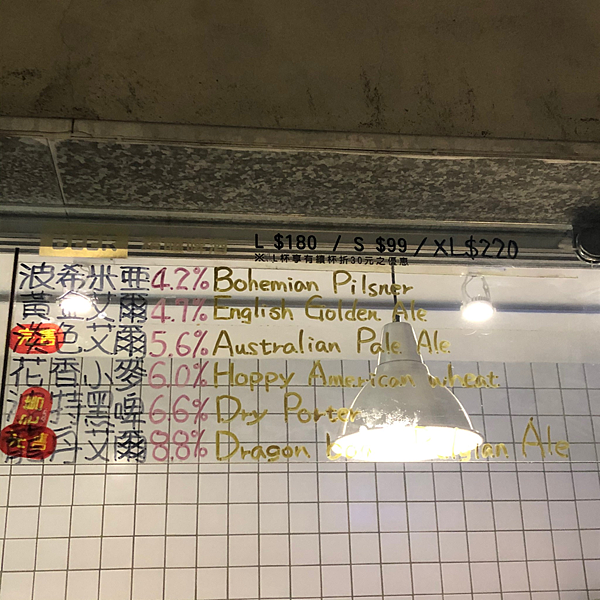 BEERS
L $180 / S $99 / XL$220
※ L杯享有續杯折30元之優惠
波希米亞 4.2% Bohemian Pilsner
黃金艾爾 4.7% English Golden Ale
淡色艾爾 5.6% Australian Pale Ale
花香小麥 6.0% Hoppy American wheat
特黑啤 6.6% Dry Porter
丹艾爾 8.8% Dragon Ale